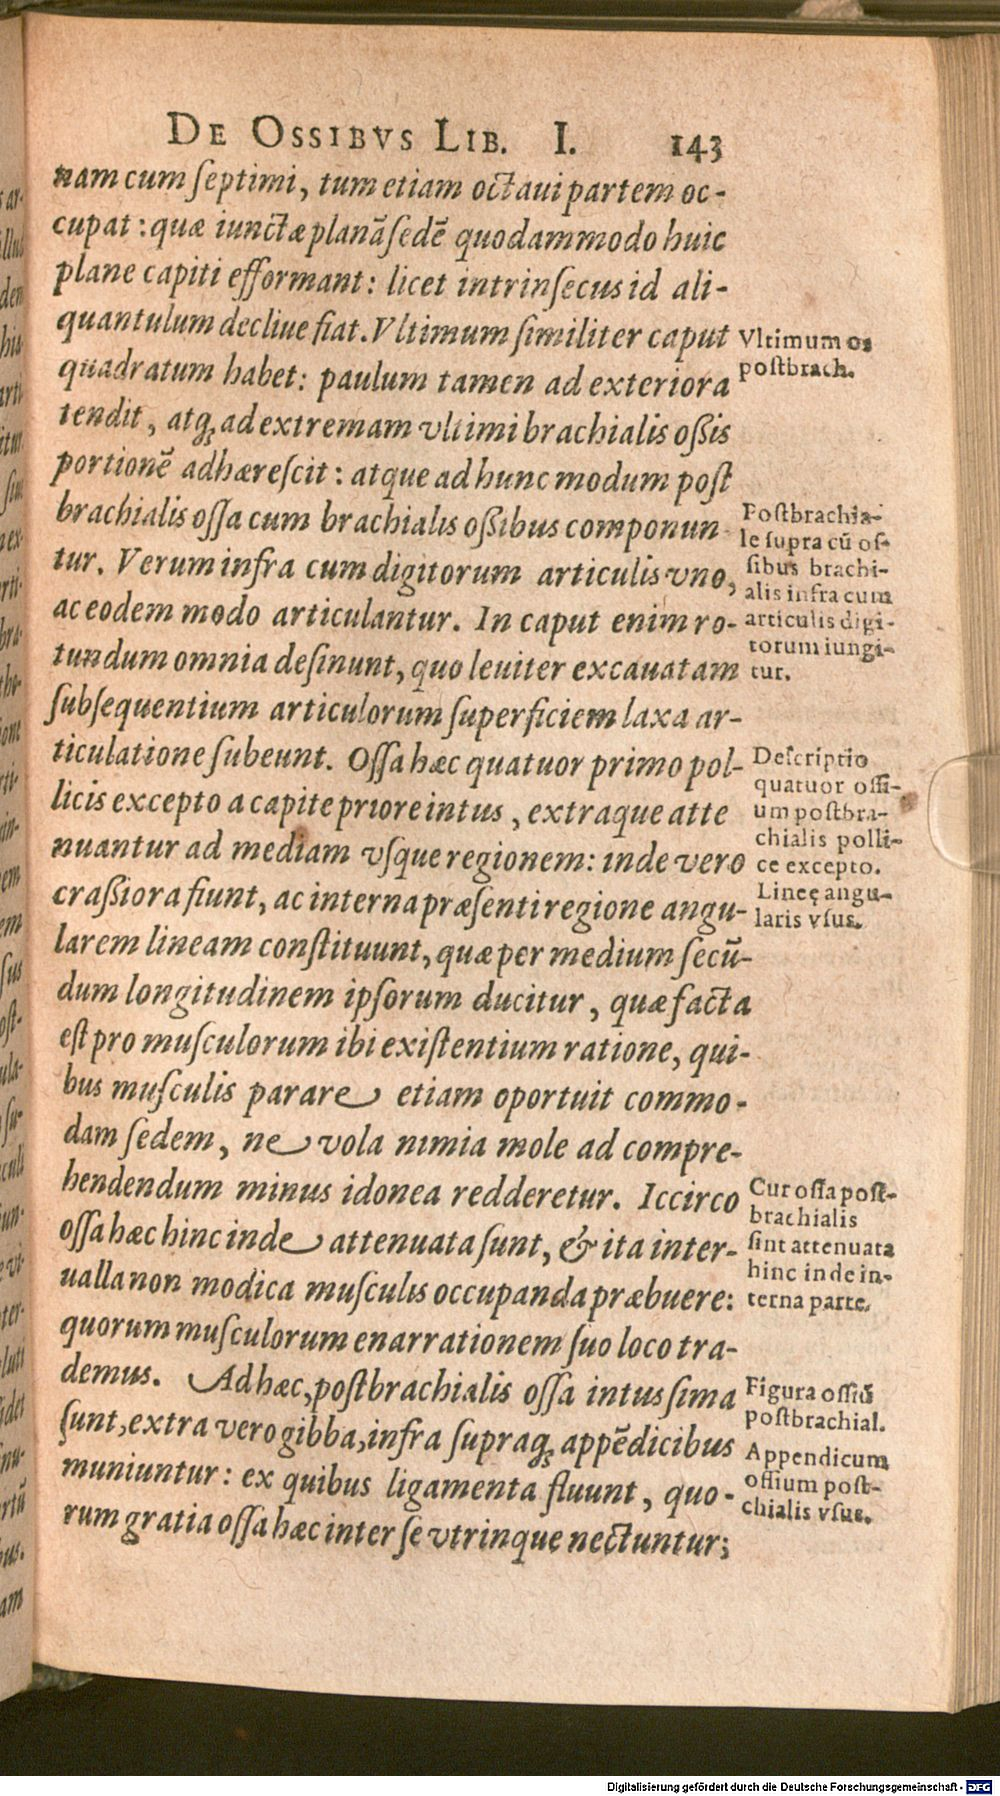 DE OSSIBVS LIB. I. 143
nam cum ſeptimi, tum etiam octaui partem oc-
cupat: quæ iunctæ planã ſedẽ quodammodo huic
plane capiti efformant: licet intrinſecus id ali-
quantulum decliue fiat. Vltimum ſimiliter caput
quadratum habet: paulum tamen ad exteriora
tendit, atq; ad extremam vltimi brachialis oßis
portionẽ adhæreſcit: atque ad hunc modum poſt
brachialis oſſa cum brachialis oßibus componun
tur. Verum infra cum digitorum articulis vno,
ac eodem modo articulantur. In caput enim ro-
tundum omnia deſinunt, quo leuiter excauatam
ſubſequentium articulorum ſuperficiem laxa ar-
ticulatione ſubeunt. Oſſa hæc quatuor primo pol-
licis excepto a capite priore intus, extraque atte
nuantur ad mediam vſque regionem: inde vero
craßiora fiunt, ac interna præſenti regione angu-
larem lineam conſtituunt, quæ per medium ſecũ-
dum longitudinem ipſorum ducitur, quæ facta
eſt pro muſculorum ibi exiſtentium ratione, qui-
bus muſculis parare etiam oportuit commo-
dam ſedem, ne vola nimia mole ad compre-
hendendum minus idonea redderetur. Iccirco
oſſa hæc hinc inde attenuata ſunt, & ita inter-
ualla non modica muſculis occupanda præbuere:
quorum muſculorum enarrationem ſuo loco tra-
demus. Ad hæc, poſtbrachialis oſſa intus ſima
ſunt, extra vero gibba, infra ſupraq; appẽdicibus
muniuntur: ex quibus ligamenta fluunt, quo-
rum gratia oſſa hæc inter ſe vtrinque nectuntur;
Vltimum os
poſtbrach.
Poſtbrachia-
le ſupra cũ oſ-
ſibus brachi-
alis infra cum
articulis digi-
torum iungi-
tur.
Deſcriptio
quatuor oſſi-
um poſtbra-
chialis polli-
ce excepto.
Lineę angu-
laris vſus.
Cur oſſa poſt-
brachialis
ſint attenuata
hinc inde in-
terna parte.
Figura oſſiũ
poſtbrachial.
Appendicum
oſſium poſt-
chialis vſus.
Digitalisierung gefördert durch die Deutsche Forschungsgemeinschaft - DFG